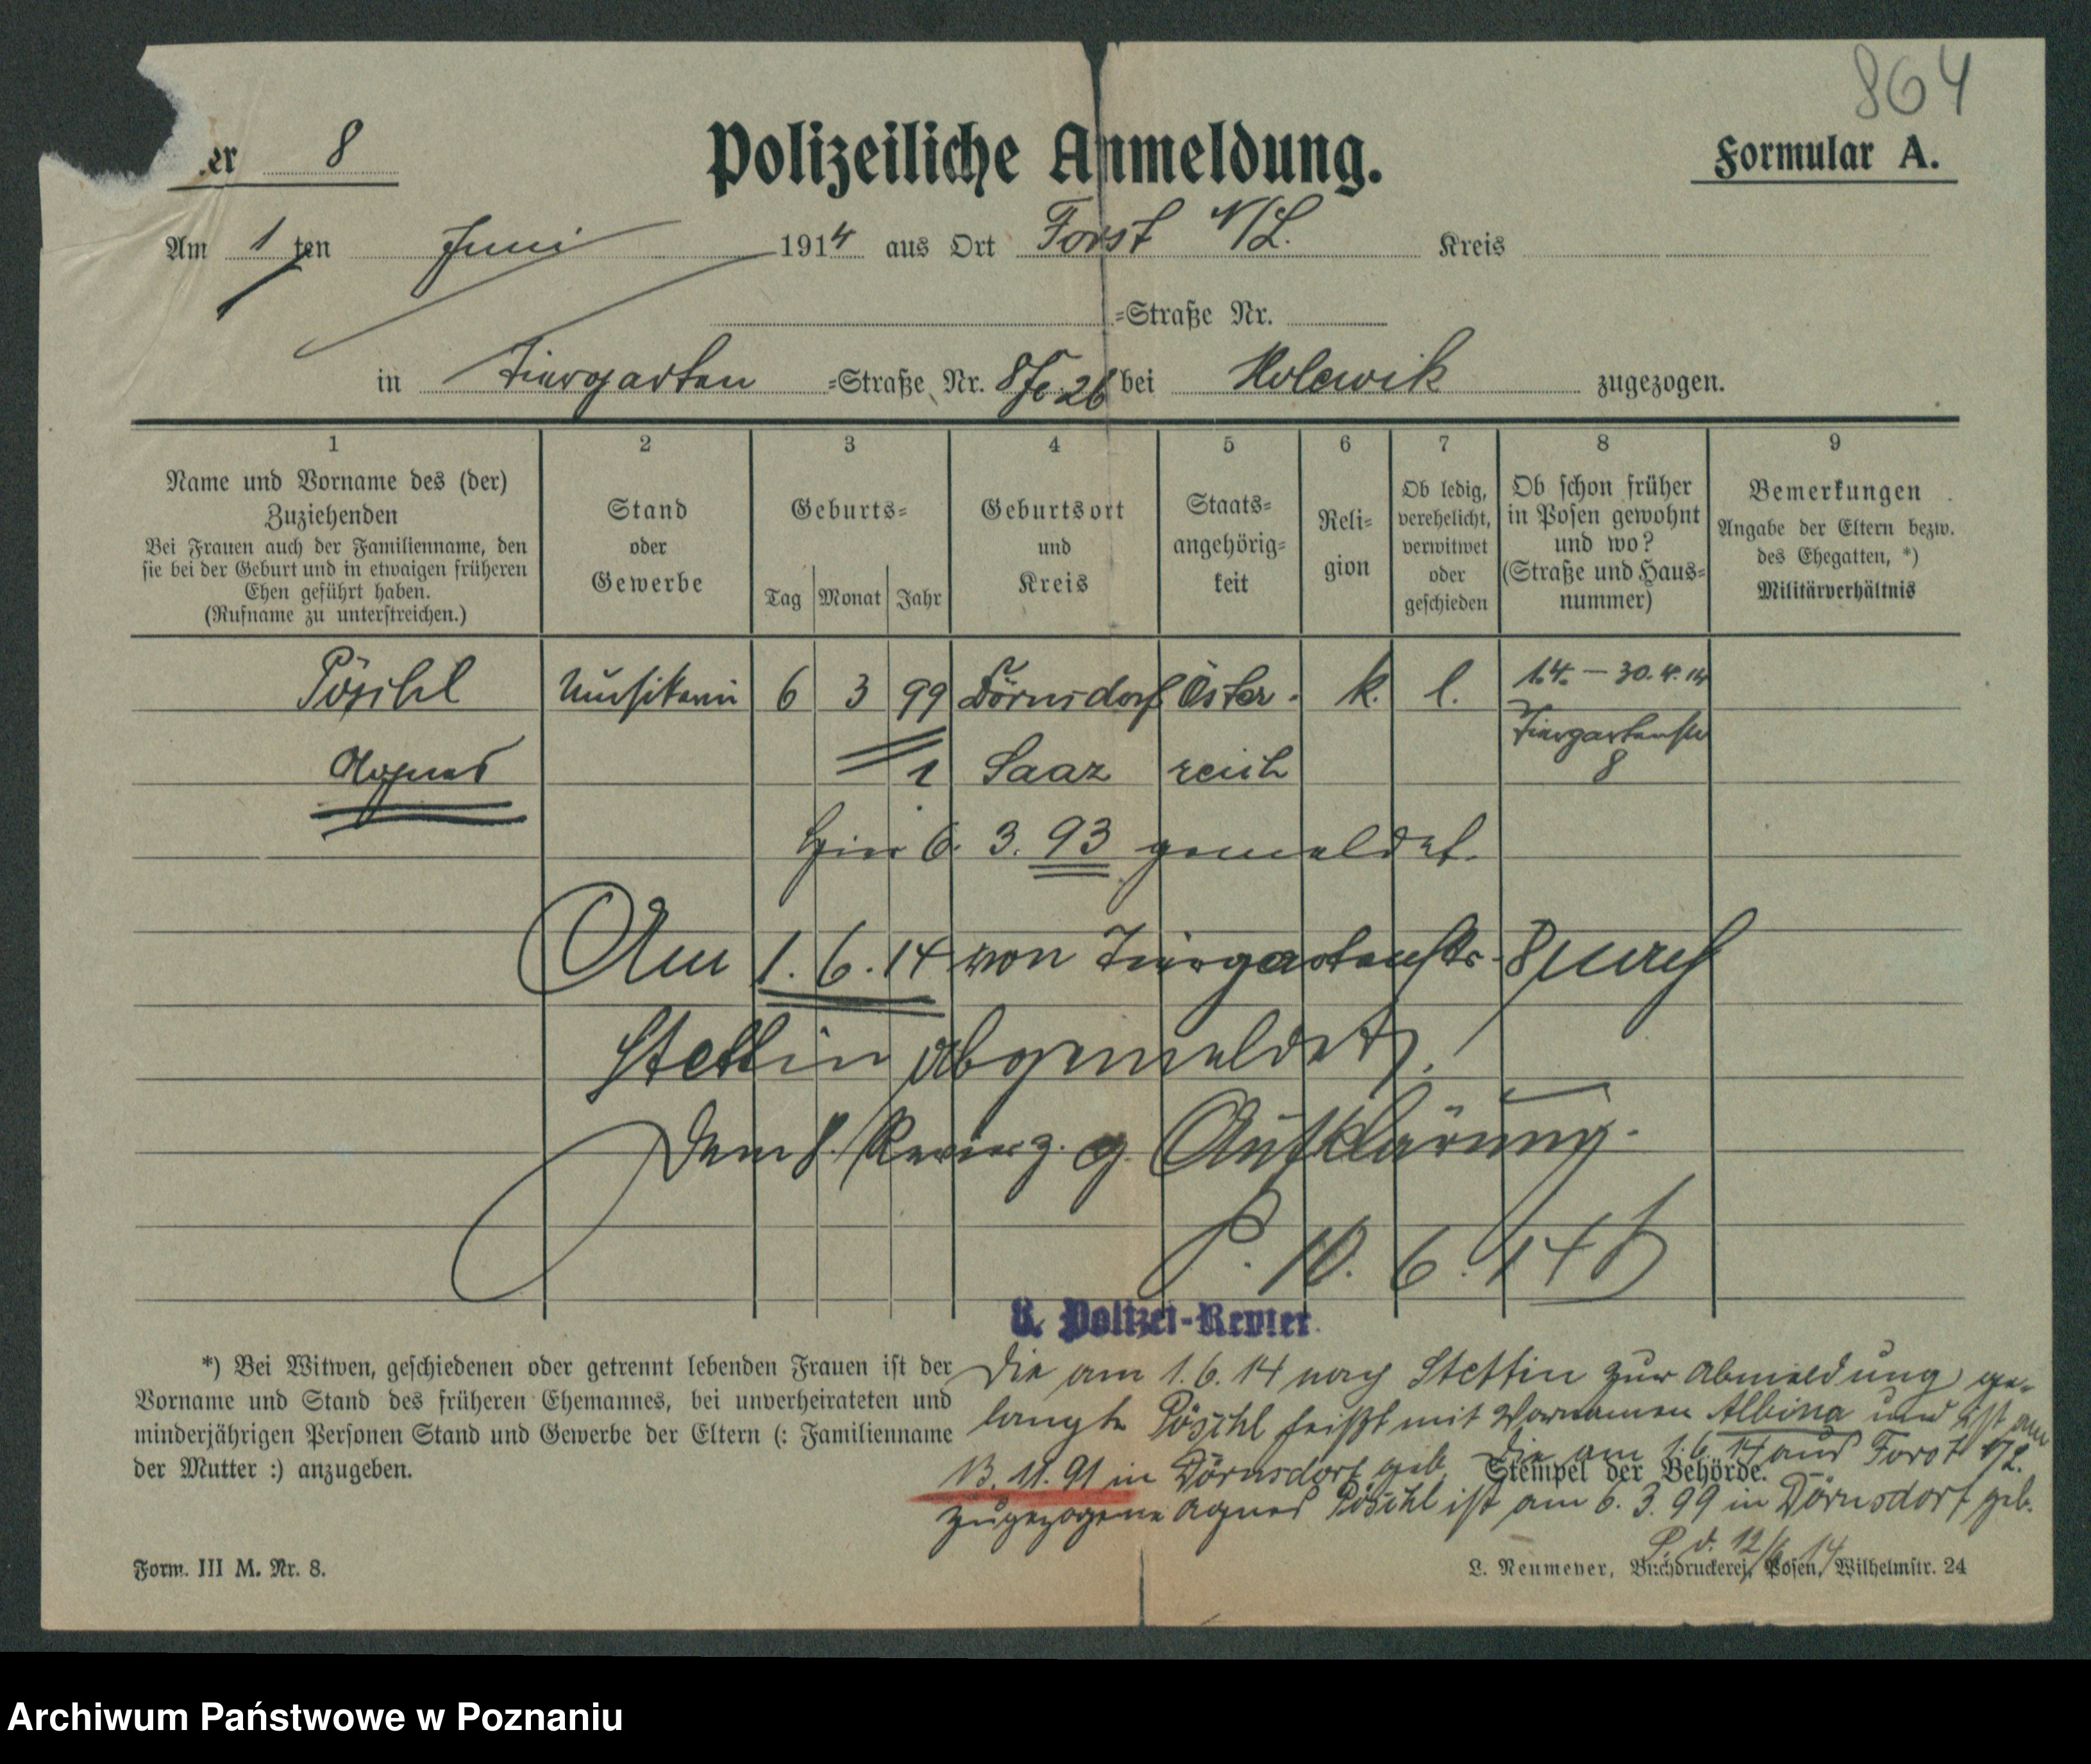 864
er 8
Polizeiliche Anmeldung.
Formular A.
Am 1 ten Juni 1914 aus Ort Forst N/L. Kreis
=Straße Nr.
in Tiergarten =Straße Nr. 8 bei zugezogen.
1 2 3 4 5 6 7 8 9
Name und Vorname des (der)
Zuziehenden
Bei Frauen auch der Familienname, den
sie bei der Geburt und in etwaigen früheren
Ehen geführt haben.
(Rufname zu unterstreichen.)
Stand
oder
Gewerbe
Geburts=
Tag Monat Jahr
Geburtsort
und
Kreis
Staats=
angehörig=
keit
Reli=
gion
Ob ledig,
verehelicht,
verwitwet
oder
geschieden
Ob schon früher
in Posen gewohnt
und wo?
(Straße und Haus=
nummer)
Bemerkungen
Angabe der Eltern bezw.
des Ehegatten, *)
Militärverhältnis
Pöschl Musikerin 6 3 99 Dörnsdorf Öster. k. l. 1.4. – 30.4.14
Agnes 1 Saaz reich Tiergartenstr
8
Hier 6. 3. 93 gemeldet.
Am 1. 6. 14 von Tiergartenstr. 8 nach
Stettin abgemeldet.
Dem 8. Revier z. g. Aufklärung.
P. 10. 6. 14
8. Polizei-Revier
*) Bei Witwen, geschiedenen oder getrennt lebenden Frauen ist der
Vorname und Stand des früheren Ehemannes, bei unverheirateten und
minderjährigen Personen Stand und Gewerbe der Eltern (: Familienname
der Mutter :) anzugeben.
Die am 1. 6. 14 nach Stettin zur Abmeldung ge-
langte Pöschl heißt mit Vornamen Albina und ist am
13. 11. 91 in Dörnsdorf geb. Die am 1. 6. 14 aus Forst N/L.
Stempel der Behörde.
zugezogene Agnes Pöschl ist am 6. 3. 99 in Dörnsdorf geb.
P. d. 12/6 14
Form. III M. Nr. 8.
L. Neumeyer, Buchdruckerei, Posen, Wilhelmstr. 24
Archiwum Państwowe w Poznaniu